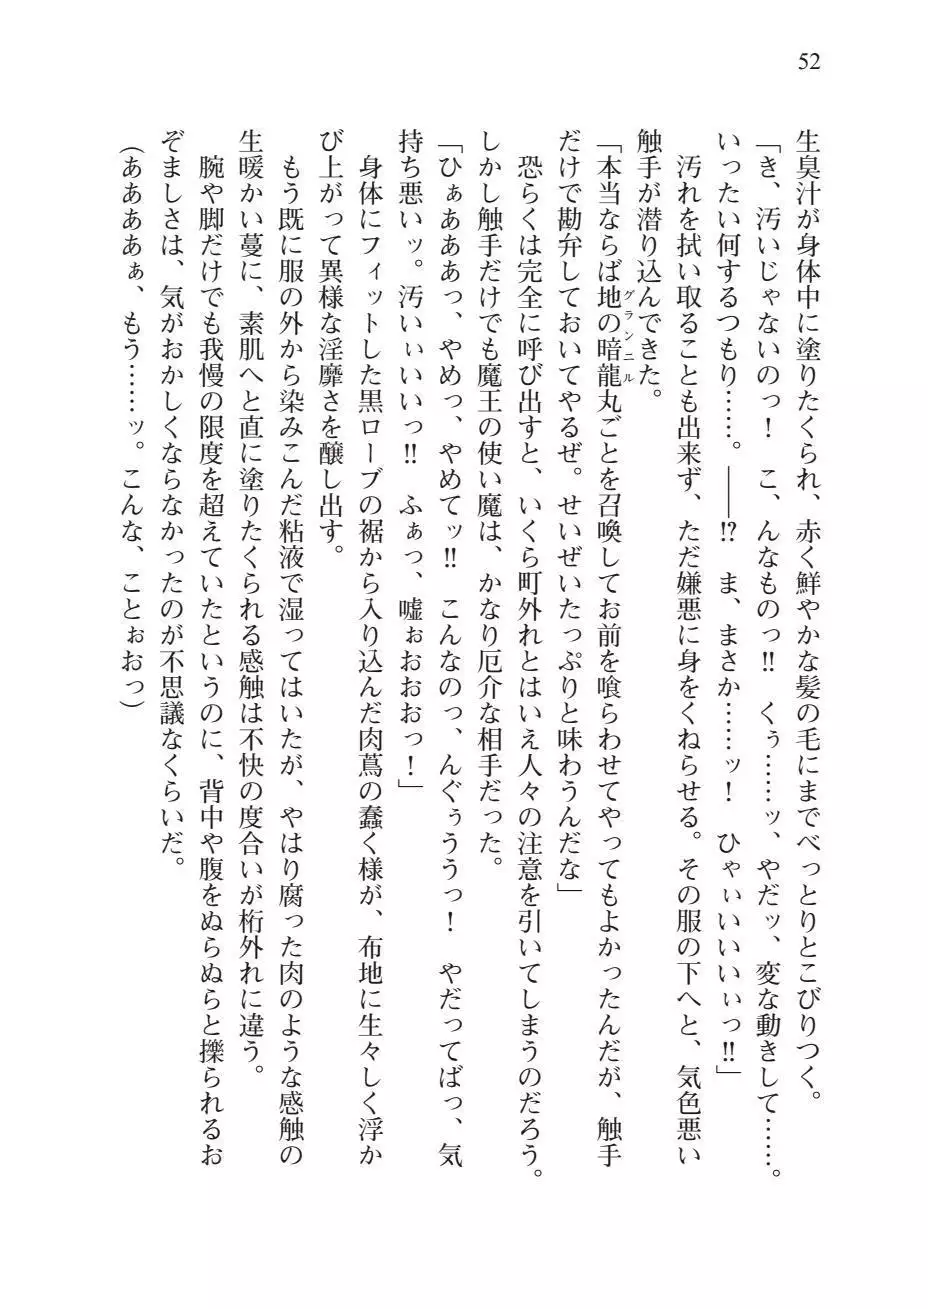 52
生臭汁が身体中に塗りたくられ、赤く鮮やかな髪の毛にまでべっとりとこびりつく。
「き、汚いじゃないのっ！　こ、んなものっ‼　くぅ……ッ、やだッ、変な動きして……。
いったい何するつもり……。――⁉　ま、まさか……ッ！　ひゃぃいいいぃっ‼」
　汚れを拭い取ることも出来ず、ただ嫌悪に身をくねらせる。その服の下へと、気色悪い
触手が潜り込んできた。
「本当ならば地の暗龍丸ごとを召喚してお前を喰らわせてやってもよかったんだが、触手
グランニル
だけで勘弁しておいてやるぜ。せいぜいたっぷりと味わうんだな」
　恐らくは完全に呼び出すと、いくら町外れとはいえ人々の注意を引いてしまうのだろう。
しかし触手だけでも魔王の使い魔は、かなり厄介な相手だった。
「ひぁあああっ、やめっ、やめてッ‼　こんなのっ、んぐぅううっ！　やだってばっ、気
持ち悪いッ。汚いぃいいっ‼　ふぁっ、嘘ぉおおおっ！」
　身体にフィットした黒ローブの裾から入り込んだ肉蔦の蠢く様が、布地に生々しく浮か
び上がって異様な淫靡さを醸し出す。
　もう既に服の外から染みこんだ粘液で湿ってはいたが、やはり腐った肉のような感触の
生暖かい蔓に、素肌へと直に塗りたくられる感触は不快の度合いが桁外れに違う。
　腕や脚だけでも我慢の限度を超えていたというのに、背中や腹をぬらぬらと擽られるお
ぞましさは、気がおかしくならなかったのが不思議なくらいだ。
（ああああぁ、もう……ッ。こんな、ことぉおっ）